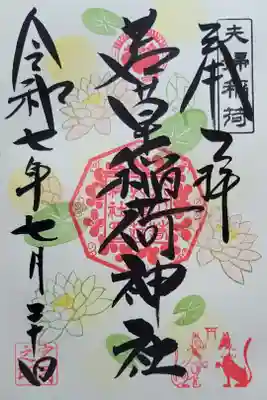 夫婦稲荷
奉拝
稲荷神社
令和七年七月三十日